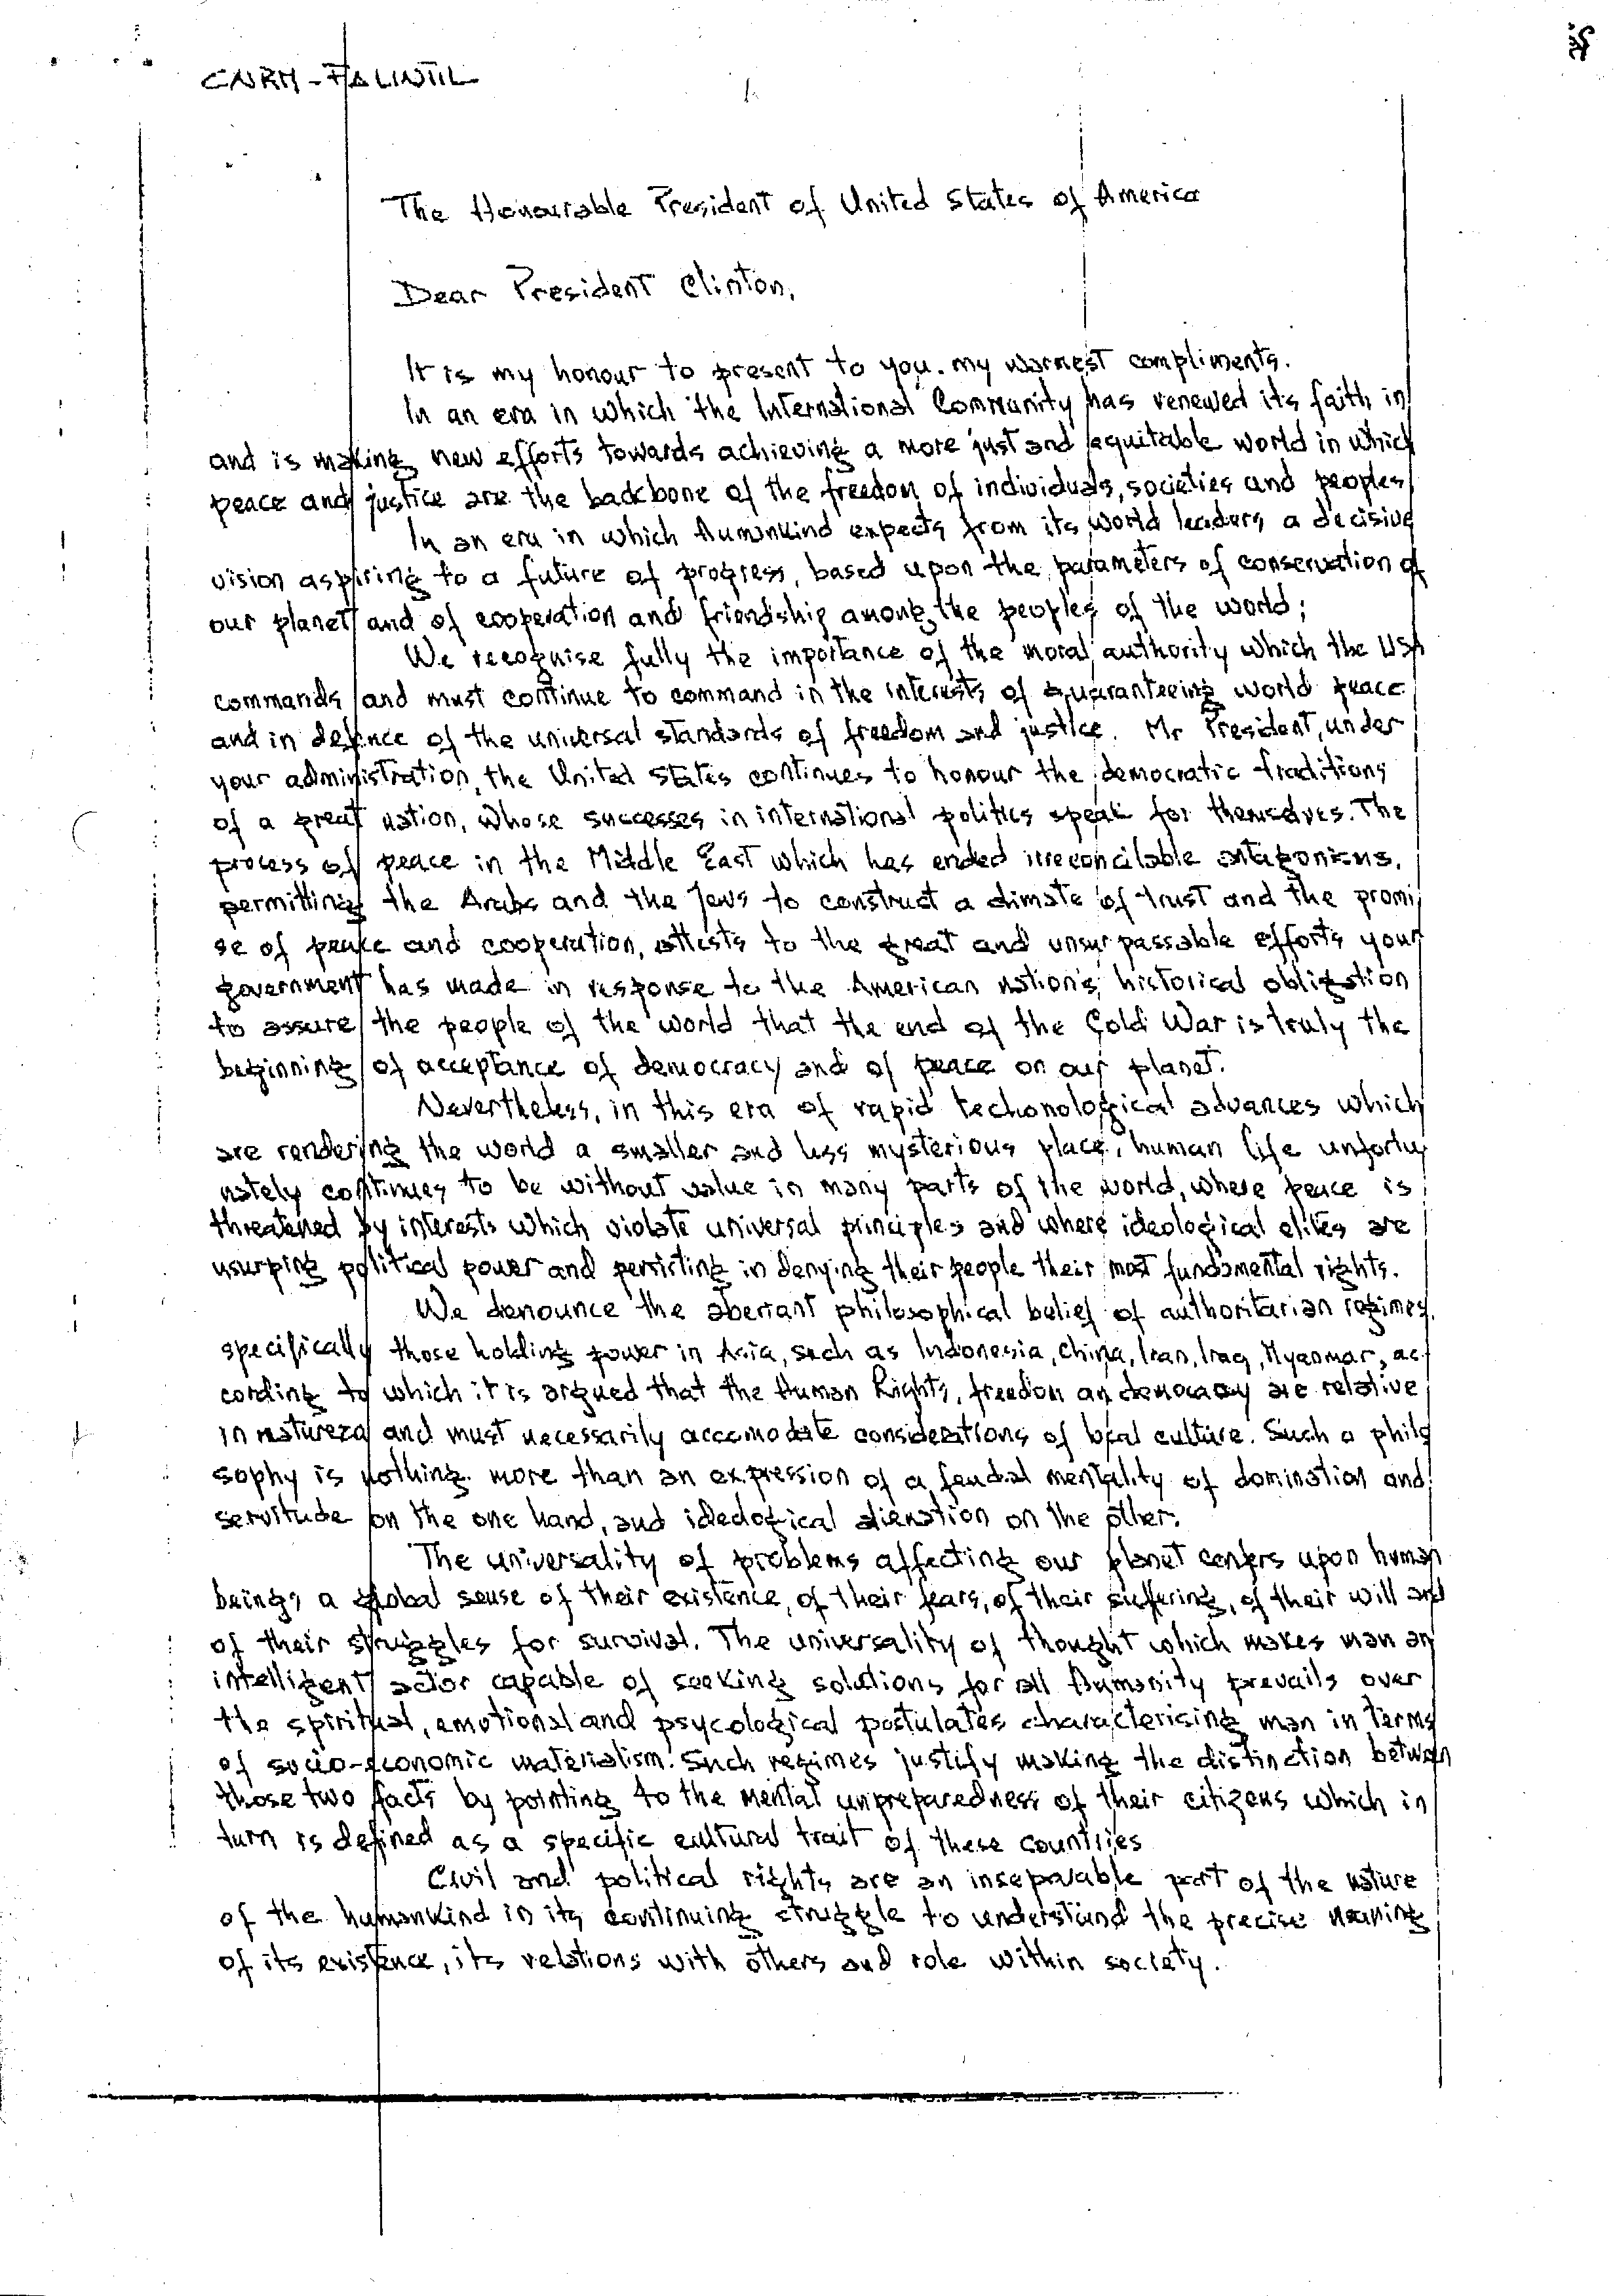 CNRM - FALINTIL
1.
The Honourable President of United States of America
Dear President Clinton,
It is my honour to present to you. my warmest compliments.
In an era in which the International Community has renewed its faith in
and is making new efforts towards achieving a more just and equitable world in which
peace and justice are the backbone of the freedom of individuals, societies and peoples
In an era in which humankind expects from its world leaders a decisive
vision aspiring to a future of progress, based upon the parameters of conservation of
our planet and of cooperation and friendship among the peoples of the world;
We recognise fully the importance of the moral authority which the USA
commands and must continue to command in the interests of guaranteeing world peace
and in defence of the universal standards of freedom and justice. Mr President, under
your administration, the United States continues to honour the democratic traditions
of a great nation, whose successes in international politics speak for themselves. The
process of peace in the Middle East which has ended irreconcilable antagonisms,
permitting the Arabs and the Jews to construct a climate of trust and the promi
se of peace and cooperation, attests to the great and unsurpassable efforts your
government has made in response to the American nation's historical obligation
to assure the people of the world that the end of the Cold War is truly the
beginning of acceptance of democracy and of peace on our planet.
Nevertheless, in this era of rapid techonological advances which
are rendering the world a smaller and less mysterious place, human life unfortu
nately continues to be without value in many parts of the world, where peace is
threatened by interests which violate universal principles and where ideological elites are
usurping political power and persisting in denying their people their most fundamental rights.
We denounce the aberrant philosophical belief of authoritarian regimes,
specifically those holding power in Asia, such as Indonesia, China, Iran, Iraq, Myanmar, ac
cording to which it is argued that the Human Rights, freedom an democracy are relative
in natureza and must necessarily accomodate considerations of local culture. Such a philo
sophy is nothing more than an expression of a feudal mentality of domination and
servitude on the one hand, and ideological alienation on the other.
The universality of problems affecting our planet centers upon human
beings a global sense of their existence, of their fears, of their suffering, of their will and
of their struggles for survival. The universality of thought which makes man an
intelligent actor capable of seeking solutions for all humanity prevails over
the spiritual, emotional and psycological postulates characterising man in terms
of socio-economic materialism. Such regimes justify making the distinction between
those two facts by pointing to the mental unpreparedness of their citizens which in
turn is defined as a specific cultural trait of these countries
Civil and political rights are an inseparable part of the nature
of the humankind in its continuing struggle to understand the precise meaning
of its existence, its relations with others and role within society.